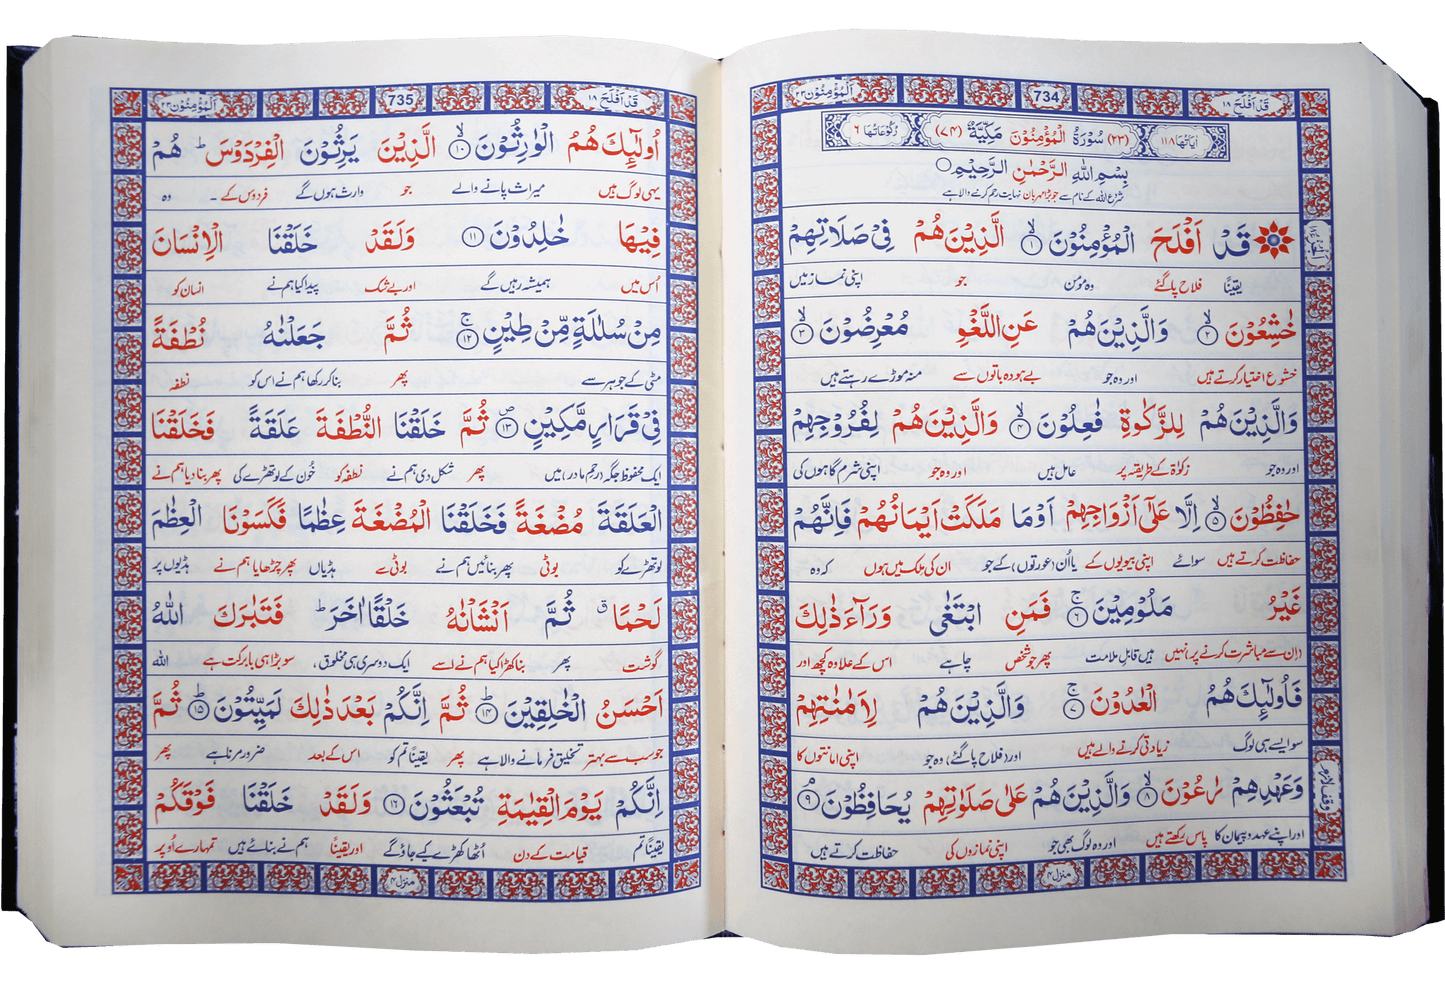 اَلْمُؤْمِنُوْن ٢٣
734
قَدْ اَفْلَحَ ١٨
اٰیَاتُهَا ١١٨
(٢٣) سُوْرَةُ الْمُؤْمِنُوْنَ مَكِّيَّةٌ (٧٤)
رُكُوْعَاتُهَا ٦
بِسْمِ اللّٰهِ الرَّحْمٰنِ الرَّحِيْمِ
شروع اللہ کے نام سے جو بڑا مہربان نہایت رحم کرنے والا ہے
قَدْ اَفْلَحَ الْمُؤْمِنُوْنَ ۙ﴿١﴾ الَّذِيْنَ هُمْ فِيْ صَلَاتِهِمْ
یقیناً فلاح پا گئے وہ مومن جو اپنی نماز میں
خٰشِعُوْنَ ۙ﴿٢﴾ وَالَّذِيْنَ هُمْ عَنِ اللَّغْوِ مُعْرِضُوْنَ ۙ﴿٣﴾
خشوع اختیار کرتے ہیں اور وہ جو بے ہودہ باتوں سے منہ موڑے رہتے ہیں
وَالَّذِيْنَ هُمْ لِلزَّكٰوةِ فٰعِلُوْنَ ۙ﴿٤﴾ وَالَّذِيْنَ هُمْ لِفُرُوْجِهِمْ
اور وہ جو زکوٰۃ کے طریقہ پر عامل ہیں اور وہ جو اپنی شرم گاہوں کی
حٰفِظُوْنَ ۙ﴿٥﴾ اِلَّا عَلٰٓى اَزْوَاجِهِمْ اَوْ مَا مَلَكَتْ اَيْمَانُهُمْ فَاِنَّهُمْ
حفاظت کرتے ہیں سوائے اپنی بیویوں کے یا اُن (عورتوں) کے جو ان کی مِلک میں ہوں کہ وہ
غَيْرُ مَلُوْمِيْنَ ۚ﴿٦﴾ فَمَنِ ابْتَغٰى وَرَآءَ ذٰلِكَ
(ان سے مباشرت کرنے پر) نہیں ہیں قابلِ ملامت پھر جو شخص چاہے اس کے علاوہ کچھ اور
فَاُولٰٓئِكَ هُمُ الْعٰدُوْنَ ۚ﴿٧﴾ وَالَّذِيْنَ هُمْ لِاَمٰنٰتِهِمْ
سو ایسے ہی لوگ زیادتی کرنے والے ہیں اور (فلاح پا گئے) وہ جو اپنی امانتوں کا
وَعَهْدِهِمْ رٰعُوْنَ ۙ﴿٨﴾ وَالَّذِيْنَ هُمْ عَلٰى صَلَوٰتِهِمْ يُحَافِظُوْنَ ۘ﴿٩﴾
اور اپنے عہد و پیمان کا پاس رکھتے ہیں اور وہ لوگ بھی جو اپنی نمازوں کی حفاظت کرتے ہیں
وقف لازم
منزل ٤
اَلْمُؤْمِنُوْن ٢٣
735
قَدْ اَفْلَحَ ١٨
اُولٰٓئِكَ هُمُ الْوٰرِثُوْنَ ۙ﴿١٠﴾ الَّذِيْنَ يَرِثُوْنَ الْفِرْدَوْسَ ؕ هُمْ
یہی لوگ ہیں میراث پانے والے جو وارث ہوں گے فردوس کے ۔ وہ
فِيْهَا خٰلِدُوْنَ ﴿١١﴾ وَلَقَدْ خَلَقْنَا الْاِنْسَانَ
اُس میں ہمیشہ رہیں گے اور بے شک پیدا کیا ہم نے انسان کو
مِنْ سُلٰلَةٍ مِّنْ طِيْنٍ ۚ﴿١٢﴾ ثُمَّ جَعَلْنٰهُ نُطْفَةً
مٹی کے جوہر سے پھر بنا کر رکھا ہم نے اس کو نطفہ
فِيْ قَرَارٍ مَّكِيْنٍ ۪﴿١٣﴾ ثُمَّ خَلَقْنَا النُّطْفَةَ عَلَقَةً فَخَلَقْنَا
ایک محفوظ جگہ (رحم مادر) میں پھر شکل دی ہم نے نطفہ کو خُون کے لوتھڑے کی پھر بنا دیا ہم نے
الْعَلَقَةَ مُضْغَةً فَخَلَقْنَا الْمُضْغَةَ عِظٰمًا فَكَسَوْنَا الْعِظٰمَ
لوتھڑے کو بوٹی پھر بنائیں ہم نے بوٹی سے ہڈیاں پھر چڑھایا ہم نے ہڈیوں پر
لَحْمًا ٭ ثُمَّ اَنْشَاْنٰهُ خَلْقًا اٰخَرَ ؕ فَتَبٰرَكَ اللّٰهُ
گوشت پھر بنا کھڑا کیا ہم نے اسے ایک دوسری ہی مخلوق، سو بڑا ہی بابرکت ہے اللہ
اَحْسَنُ الْخٰلِقِيْنَ ؕ﴿١٤﴾ ثُمَّ اِنَّكُمْ بَعْدَ ذٰلِكَ لَمَيِّتُوْنَ ؕ﴿١٥﴾ ثُمَّ
جو سب سے بہتر تخلیق فرمانے والا ہے پھر یقیناً تم کو اس کے بعد ضرور مرنا ہے پھر
اِنَّكُمْ يَوْمَ الْقِيٰمَةِ تُبْعَثُوْنَ ﴿١٦﴾ وَلَقَدْ خَلَقْنَا فَوْقَكُمْ
یقیناً تم قیامت کے دن اُٹھا کھڑے کیے جاؤ گے اور یقیناً ہم نے بنائے ہیں تمہارے اُوپر
منزل ٤